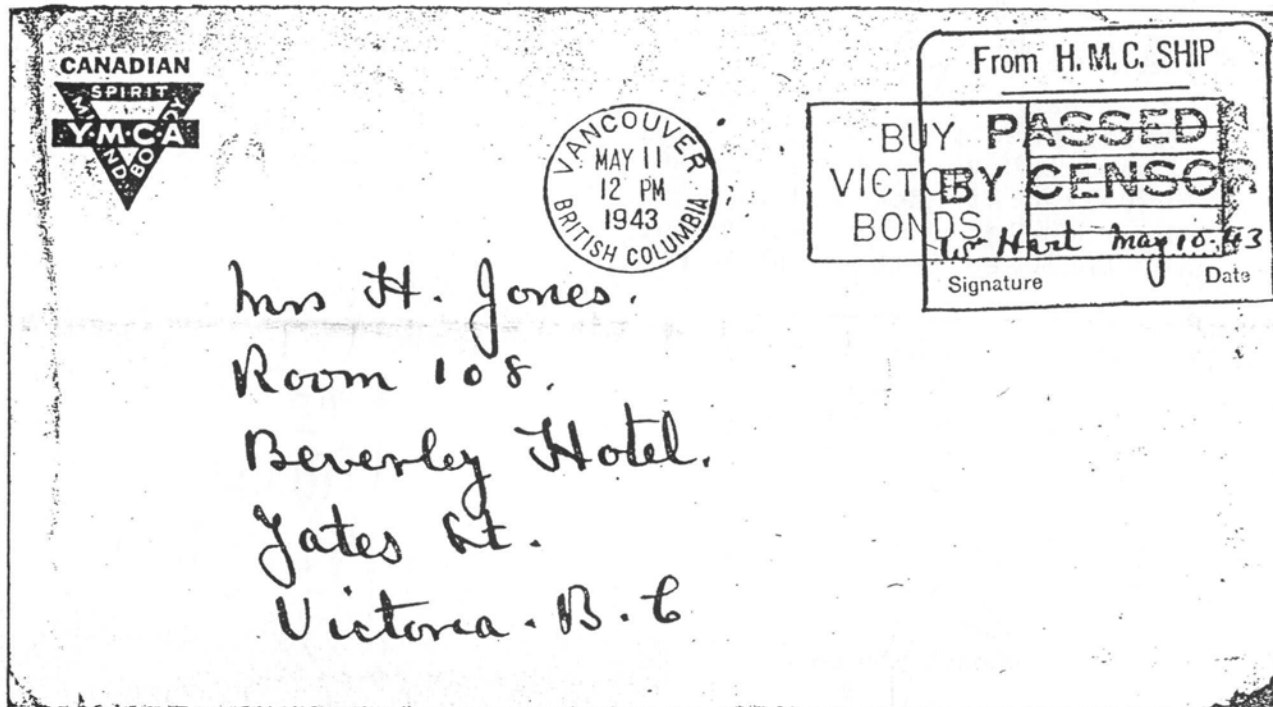 CANADIAN
SPIRIT
MIND
BODY
Y·M·C·A
VANCOUVER
MAY 11
12 PM
1943
BRITISH COLUMBIA
BUY
VICTORY
BONDS
From H.M.C. SHIP
PASSED
BY CENSOR
Wm Hart May 10·43
Signature Date
Mrs H. Jones.
Room 108.
Beverley Hotel.
Yates St.
Victoria. B. C